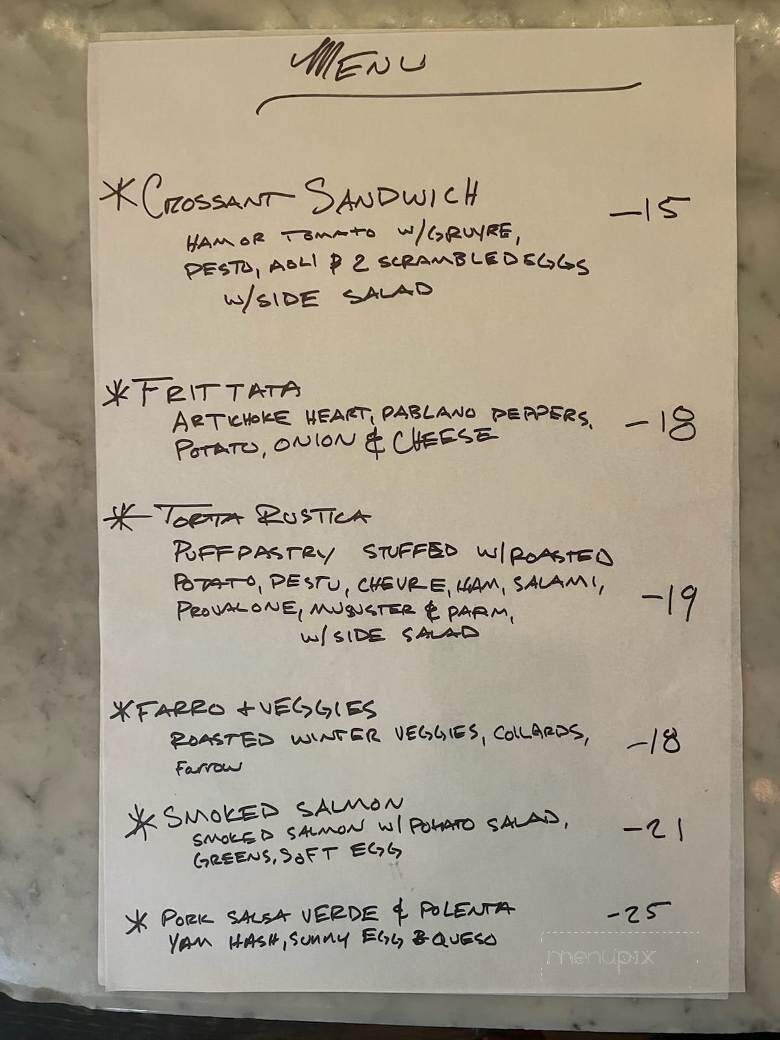 MENU
* CROSSANT SANDWICH -15
HAM OR TOMATO W/GRUYRE,
PESTO, AOLI & 2 SCRAMBLED EGGS
W/SIDE SALAD
* FRITTATA
ARTICHOKE HEART, PABLANO PEPPERS, -18
POTATO, ONION & CHEESE
* TORTA RUSTICA
PUFFPASTRY STUFFED W/ROASTED
POTATO, PESTO, CHEVRE, HAM, SALAMI, -19
PROVALONE, MUNSTER & PARM,
W/SIDE SALAD
* FARRO + VEGGIES
ROASTED WINTER VEGGIES, COLLARDS, -18
Farrow
* SMOKED SALMON
SMOKED SALMON W/ POTATO SALAD, -21
GREENS, SOFT EGG
* PORK SALSA VERDE & POLENTA -25
YAM HASH, SUNNY EGG & QUESO
menupix